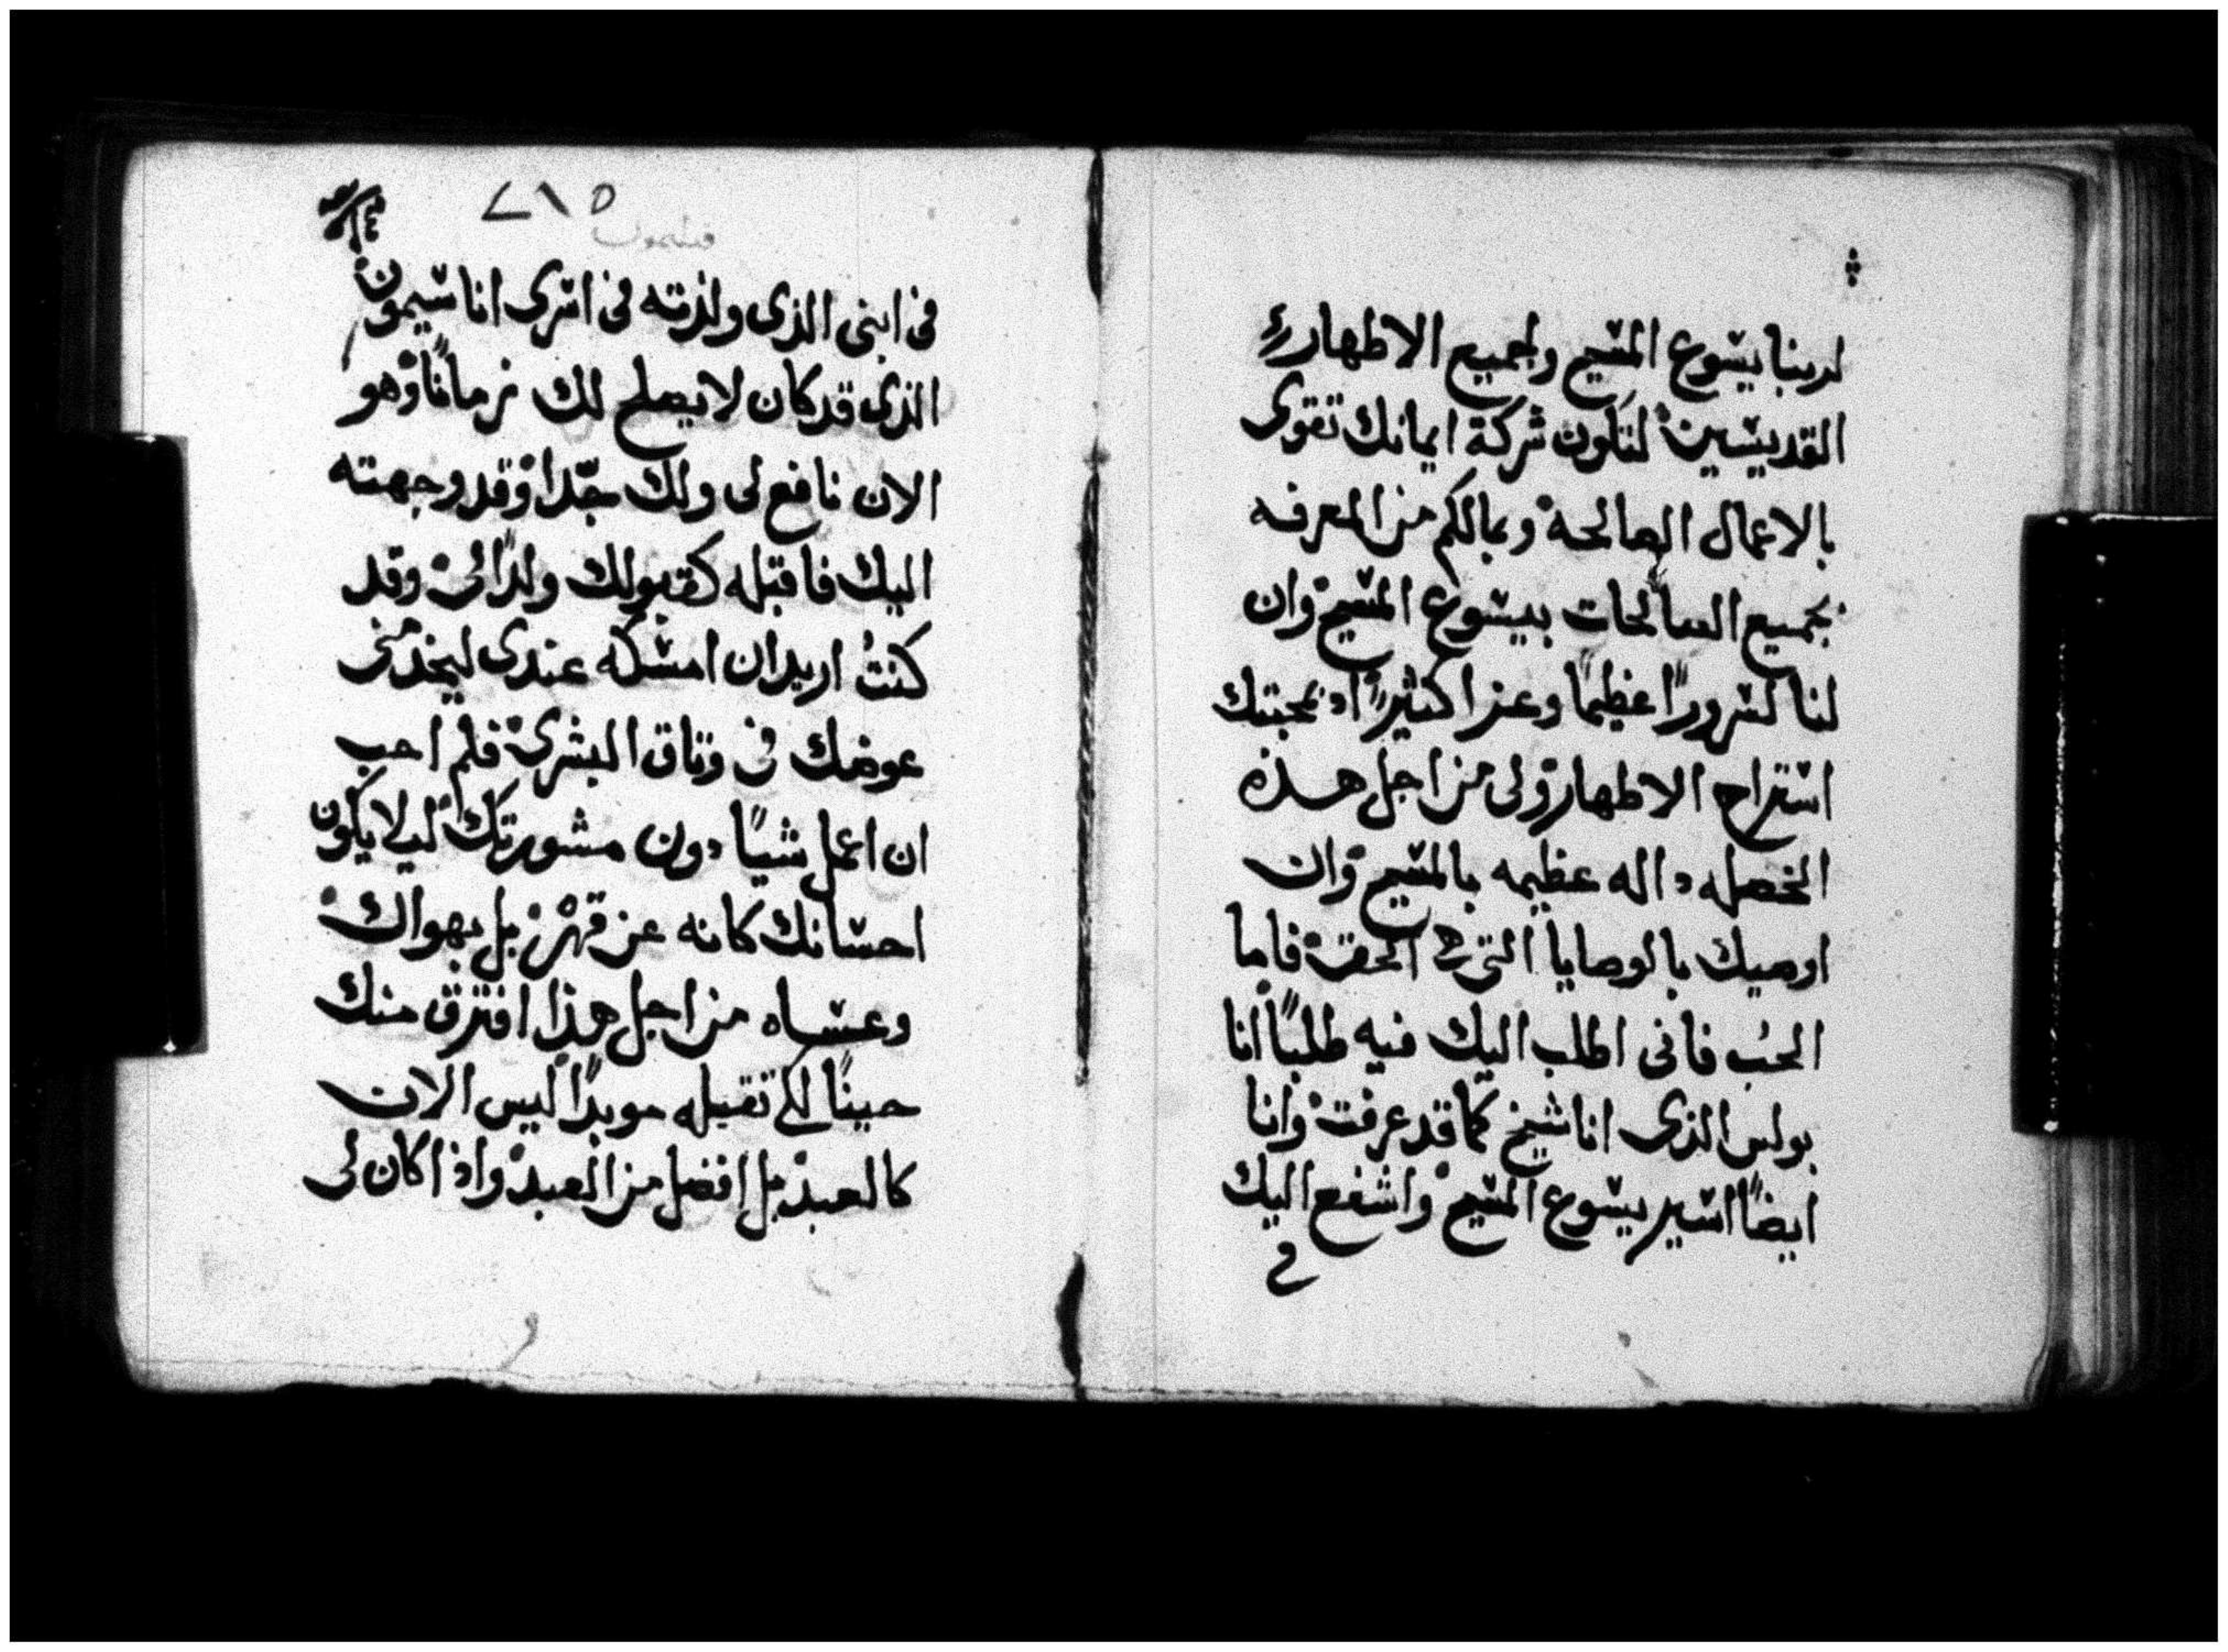 لربنا يسوع المسيح ولجميع الاطهار
القديسين لتكون شركة ايمانك تقوى
بالاعمال الصالحة وبمالكم من المعرفه
بجميع الصالحات بيسوع المسيح وان
لنا لسرورًا عظيمًا وعزا كثيرًا اذ بمحبتك
استراح الاطهار ولى من اجل هذه
الخصله داله عظيمه بالمسيح وان
اوصيك بالوصايا التى هى الحق فاما
الحب فانى اطلب اليك فيه طلبًا انا
بولس الذى انا شيخ كما قد عرفت وانا
ايضًا اسير يسوع المسيح واشفع اليك
فى
٢١٥
فليمون
فى ابنى الذى ولدته فى اسرى اناسيمون
الذى قد كان لا يصلح لك زمانًا وهو
الان نافع لى ولك جدّا وقد وجهته
اليك فاقبله كقبولك ولدًا لى وقد
كنتُ اريد ان امسكه عندى ليخدمنى
عوضك فى وثاق البشرى فلم احب
ان اعمل شيًا دون مشورتك ليلا يكون
احسانك كانه عن قهر بل بهواك
وعساه من اجل هذا افترق منك
حينًا لكى تقبله موبدًا ليس الان
كالعبد بل افضل من العبد واذا كان لى